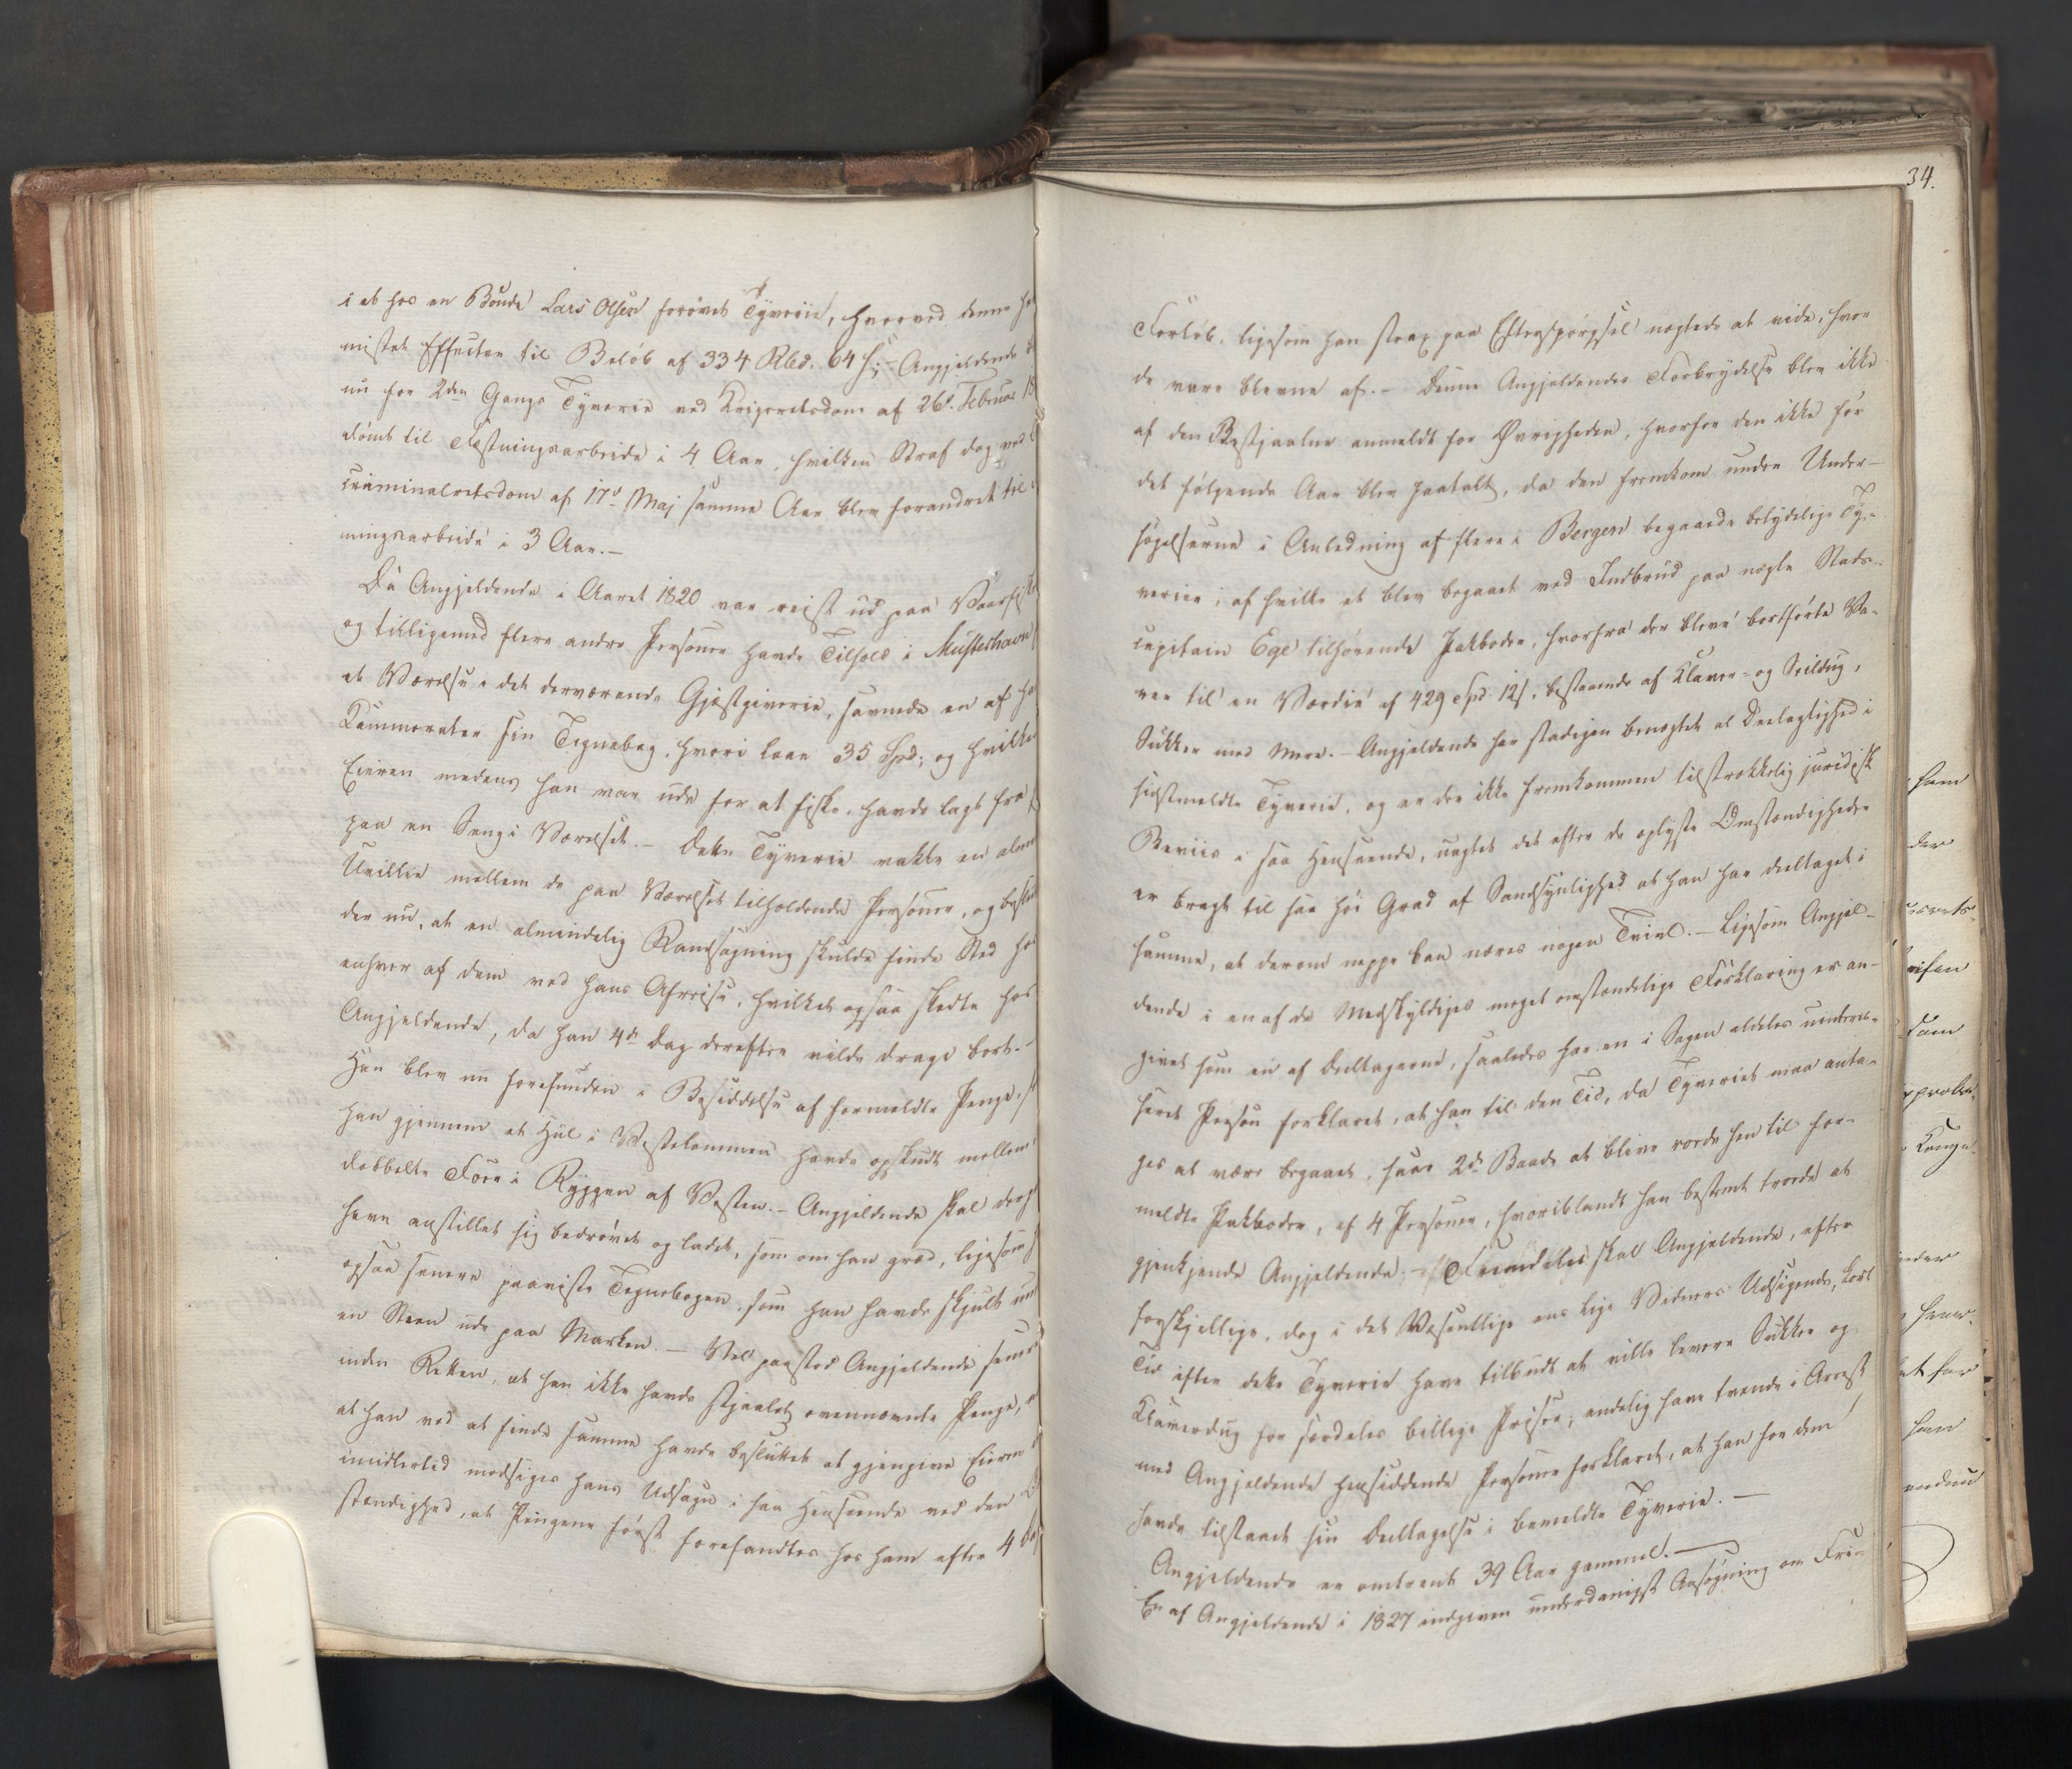 i et hos en Bonde Lars Olsen forøvet Tyverie, hvorved denne
mistet Effecter til Beløb af 334 Rbd. 64 s; - Angjeldende
nu for 2den Gangs Tyverie ved Krigsretsdom af 26d. Februar 18
dømt til Fæstningsarbeide i 4 Aar, hvilken Straf dog ved
criminalretsdom af 17d. Maj samme Aar blev forandret til
ningsarbeide i 3 Aar. -
Da Angjeldende i Aaret 1820 var reist ud paa Vaarfiske
og tilligemed flere andre Personer havde Tilhold i
et Værelse i det derværende Gjæstgiverie, savnede en af
Kammerater sin Tegnebog, hvori laae 35 Spd; og hvilken
Eieren medens han var ude for at fiske, havde lagt fra
paa en Seng i Værelset. - Dette Tyverie vakte en
Uvillie mellem de paa Værelset tilholdende Personer, og
der nu, at en almindelig Randsagning skulde finde Sted
enhver af dem ved hans Afreise, hvilket ogsaa skedte hos
Angjeldende, da han 4de Dag derefter vilde drage bort. -
Han blev nu forefunden i Besiddelse af formeldte Penge,
han gjennem et Hul i Vestelommen havde opskudt mellem
dobbelte Foer i Ryggen af Vesten. - Angjeldende skal
have anstillet sig bedrøvet og ladet, som om han græd, ligesom
ogsaa senere paaviste Tegnebogen, som han havde skjult
en Steen ude paa Marken. - Vel paastod Angjeldende
inden Retten, at han ikke havde stjaalet ovennævnte Penge,
at han ved at finde samme havde besluttet at gjengive Eieren
imidlertid modsiges hans Udsagn i saa Henseende ved den
stændighed, at Pengene først forefandtes hos ham efter 4
34.
Forløb, ligesom han strax paa Efterspørgsel nægtede at vide, hvor
de vare blevne af. - Denne Angjeldendes Forbrydelse blev ikke
af den Bestjaalne anmeldt for Øvrigheden, hvorfor den ikke før
det følgende Aar blev paatalt, da den fremkom under Under-
søgelserne i Anledning af flere i Bergen begaaede betydelige Ty-
verier, af hvilke et blev begaaet ved Indbrud paa nogle Stads-
capitain Ege tilhørende Pakboder, hvorfra der bleve bortførte Va-
rer til en Værdie af 429 Spd. 12 s, bestaaende af Klaver- og Seildug,
Sukker med mere. - Angjeldende har stadigen benægtet al Deelagtighed i
sidstmeldte Tyverie, og er der ikke fremkommen tilstrækkelig juridisk
Beviis i saa Henseende, uagtet det efter de oplyste Omstændigheder
er bragt til saa høi Grad af Sandsynlighed at han har deeltaget i
samme, at derom neppe kan næres nogen Tvivl. - Ligesom Angjel-
dende i en af de Medskyldiges meget omstændelige Forklaring er an-
givet som en af Deeltagerne, saaledes har en i Sagen aldeles uinteres-
seret Person forklaret, at han til den Tid, da Tyveriet maa anta-
ges at være begaaet, saae 2de Baade at blive roede hen til for-
meldte Pakboder, af 4 Personer, hvoriblandt han bestemt troede at
gjenkjende Angjeldende; - Fremdeles skal Angjeldende, efter
forskjellige, dog i det Væsentlige eens lige Vidners Udsigende, kort
Tid efter dette Tyverie have tilbudt at ville levere Sukker og
Klaverdug for særdeles billige Priser, endelig have tvende i Arrest
med Angjeldende hensiddende Personer forklaret, at han for dem
havde tilstaaet sin Deeltagelse i bemeldte Tyverie. -
Angjeldende er omtrent 39 Aar gammel. -
En af Angjeldende i 1827 indgiven underdanigst Ansøgning om Fri-
ham
der
han